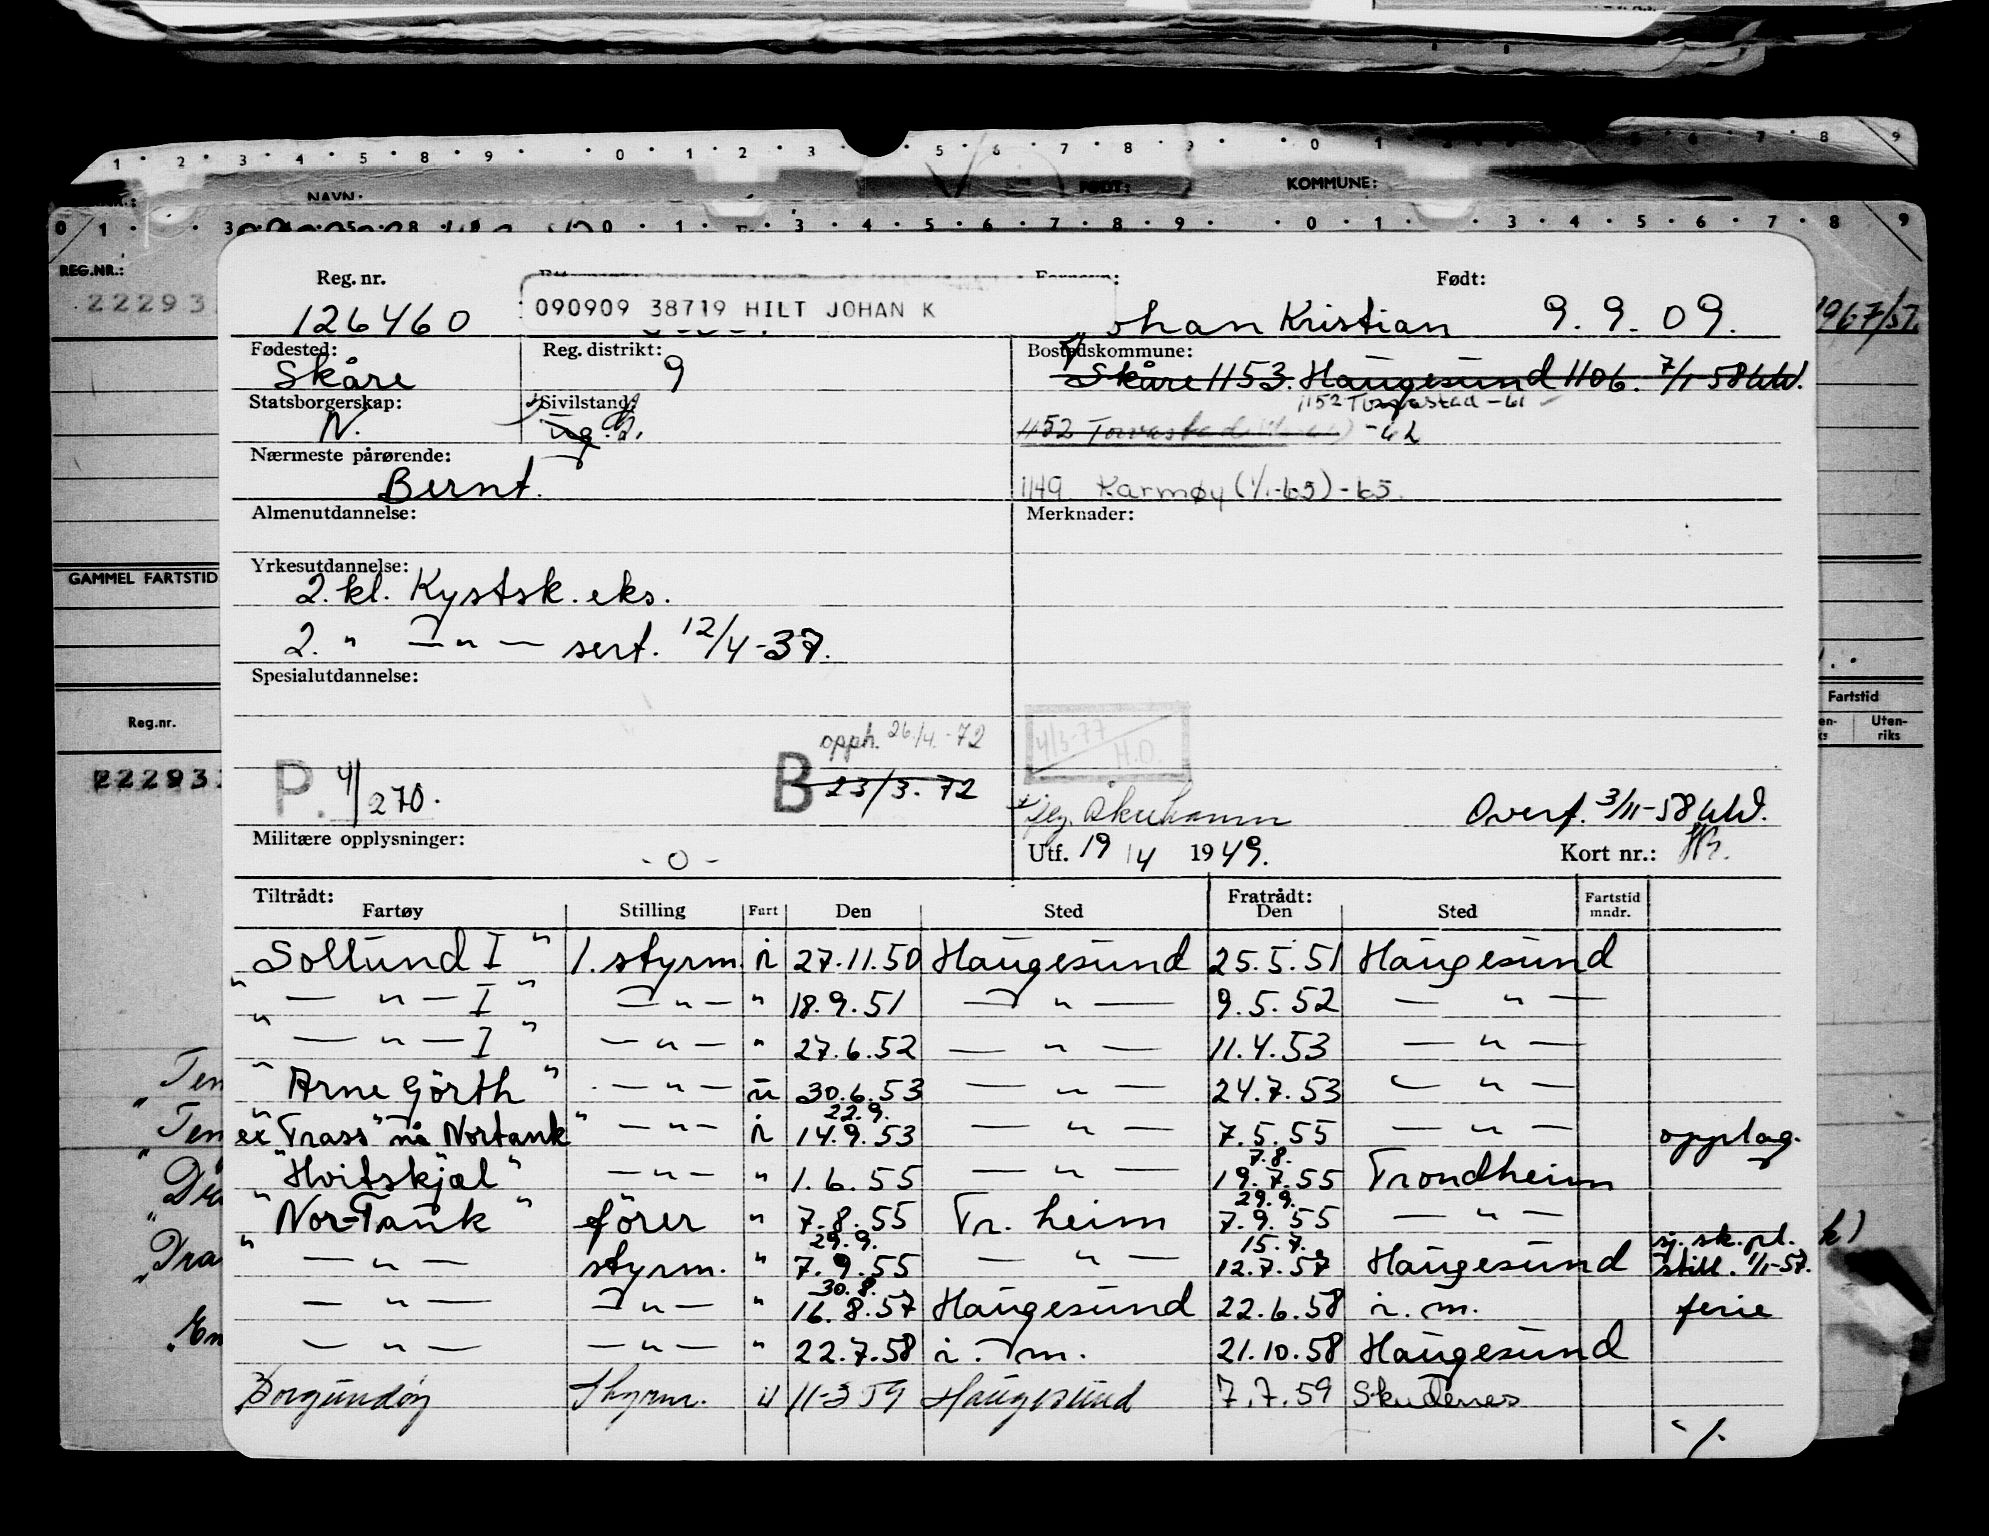 1 · 2 · 3 4 5 8 9 · 0 · 1 2 · 3 5 · 6 7 · 8 · 9 · 0 1 6 · 7 · 8 9
NAVN: FØDT: KOMMUNE:
0 1 · 3 0 · 1 · 3 · 4 · 5 · 6 · 7 · 8 · 9 · 0 · 1 · 3 · 4 · 5 · 6 · 7 · 8 9
REG.NR.:
22293
1967/57.
GAMMEL FARTSTID
Reg.nr.
22293
Fartstid
Uten-
riks
Reg. nr. Født:
126460 090909 38719 HILT JOHAN K Johan Kristian 9. 9. 09.
Fødested: Reg. distrikt: Bostedskommune:
Skåre 9 Skåre 1153. Haugesund 1106. 7/1 58
Statsborgerskap: Sivilstand: 1152 Torvastad - 61
N. Ug. 1152 Torvastad - 62
Nærmeste pårørende:
Bernt. 1149 Karmøy (1/1-65) - 65.
Almenutdannelse: Merknader:
Yrkesutdannelse:
2. kl. Kystsk. eks.
2. " — " — sert. 12/4-37.
Spesialutdannelse:
opph. 26/4.-72 4/3-77
H.O.
P. 4/270. B 23/3.72
Åkrehamn Overf. 3/11-58
Militære opplysninger: - 0 - Utf. 19/4 1949. Kort nr.:
Tiltrådt: Fratrådt: Fartstid
Fartøy Stilling Fart Den Sted Den Sted mndr.
Sollund I " 1. styrm. i 27.11.50 Haugesund 25.5.51 Haugesund
" — " — I " — " — " 18.9.51 — " — 9.5.52 — " —
" — " — I " — " — " 27.6.52 — " — 11.4.53 — " —
" Arne Görth " — " — u 30.6.53 — " — 24.7.53 — " —
22.9.
ex "Trass" nå Nortank " — " — i 14.9.53 — " — 7.5.55 — " — opplag.
7.8.
"Hvitskjæl" — " — " 1.6.55 — " — 19.7.55 Trondheim
29.9.
" Nor-Tank " fører " 7.8.55 Tr. heim 7.9.55 — " —
29.9. 15.7. sj. sk. pl.
" — " — styrm. " 7.9.55 — " — 12.7.57 Haugesund still. 1/1-57.
30.8.
— " — — " — " 16.8.57 Haugesund 22.6.58 i. m. ferie
— " — — " — " 22.7.58 i. m. 21.10.58 Haugesund
Borgundøy Styrm. u 11-3 59 Haugesund 7.7.59 Skudenes